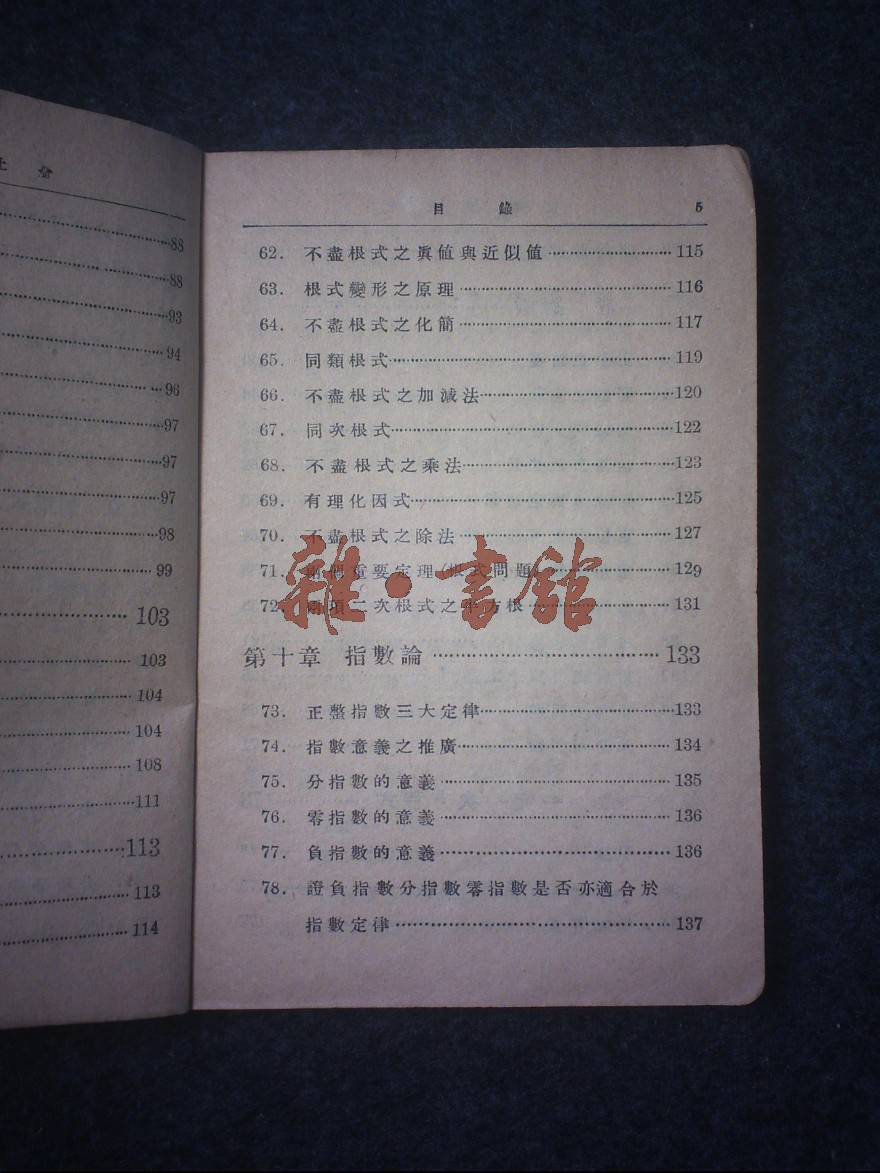 88
88
93
94
96
97
97
97
98
99
103
103
104
104
108
111
113
113
114
目錄 5
62. 不盡根式之眞値與近似值 115
63. 根式變形之原理 116
64. 不盡根式之化簡 117
65. 同類根式 119
66. 不盡根式之加減法 120
67. 同次根式 122
68. 不盡根式之乘法 123
69. 有理化因式 125
70. 不盡根式之除法 127
71. 兩個重要定理(根式問題) 129
72. 兩項二次根式之平方根 131
雜·書館
第十章 指數論 133
73. 正整指數三大定律 133
74. 指數意義之推廣 134
75. 分指數的意義 135
76. 零指數的意義 136
77. 負指數的意義 136
78. 證負指數分指數零指數是否亦適合於
指數定律 137